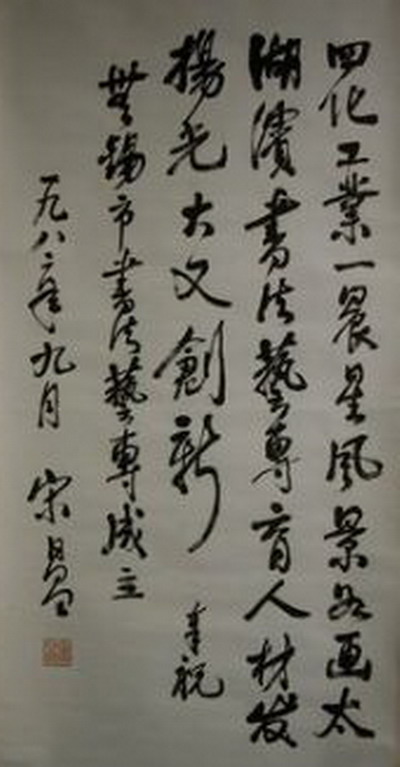 四化工業一晨星風景如画太
湖濱書法藝專育人材發
揚光大又創新
奉祝
無錫市書法藝專成立
一九八二年九月 宋昌